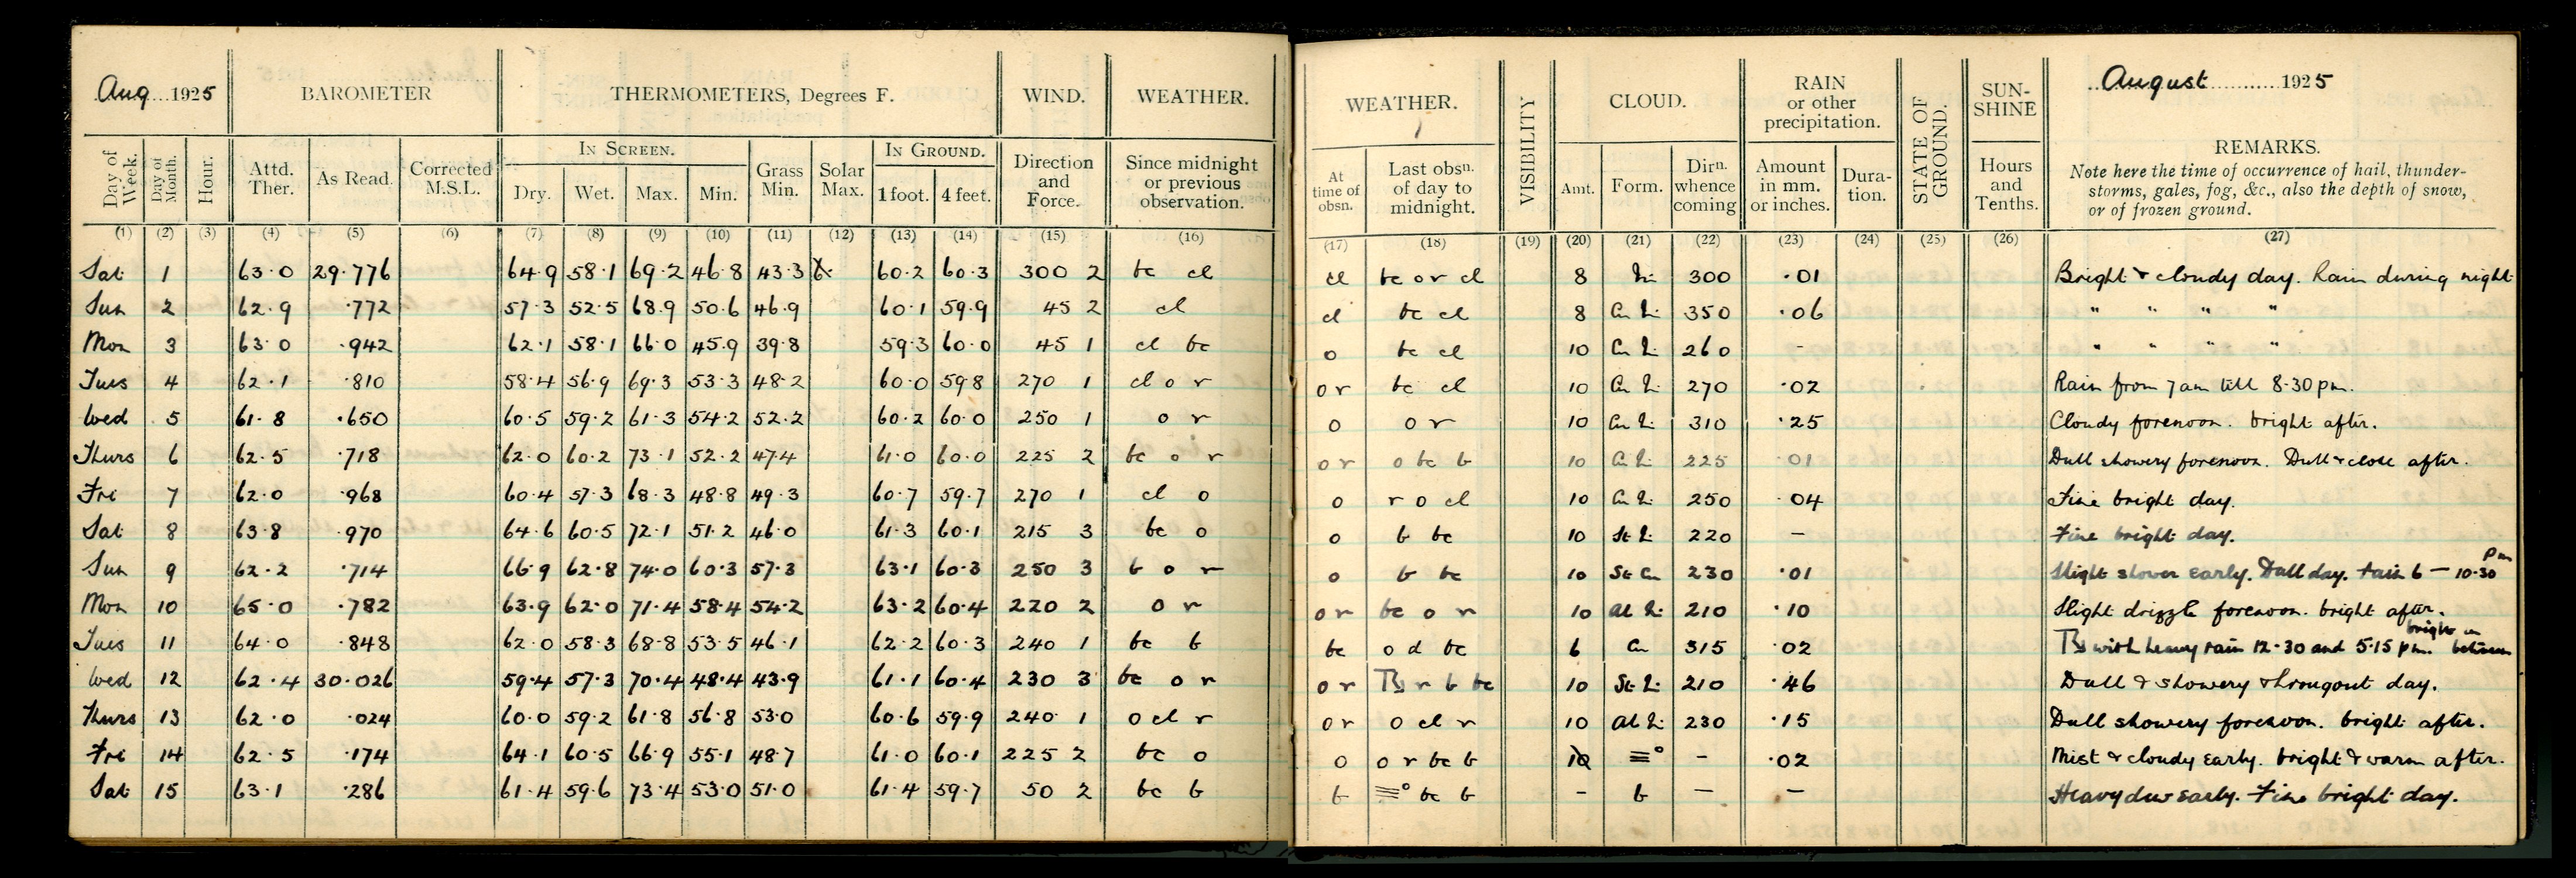 Aug 1925 BAROMETER THERMOMETERS, Degrees F. WIND. WEATHER.
Day of Week. Day of Month. Hour. Attd. Ther. As Read. Corrected M.S.L. IN SCREEN. Dry. Wet. Max. Min. Grass Min. Solar Max. IN GROUND. 1 foot. 4 feet. Direction and Force. Since midnight or previous observation.
(1) (2) (3) (4) (5) (6) (7) (8) (9) (10) (11) (12) (13) (14) (15) (16)
Sat 1 63.0 29.776 64.9 58.1 69.2 46.8 43.3 60.2 60.3 300 2 bc cl
Sun 2 62.9 .772 57.3 52.5 68.9 50.6 46.9 60.1 59.9 45 2 cl
Mon 3 63.0 .942 62.1 58.1 66.0 45.9 39.8 59.3 60.0 45 1 cl bc
Tues 4 62.1 .810 58.4 56.9 69.3 53.3 48.2 60.0 59.8 270 1 cl o r
Wed 5 61.8 .650 60.5 59.2 61.3 54.2 52.2 60.2 60.0 250 1 o r
Thurs 6 62.5 .718 62.0 60.2 73.1 52.2 47.4 61.0 60.0 225 2 bc o r
Fri 7 62.0 .968 60.4 57.3 68.3 48.8 49.3 60.7 59.7 270 1 cl o
Sat 8 63.8 .970 64.6 60.5 72.1 51.2 46.0 61.3 60.1 215 3 bc o
Sun 9 62.2 .714 66.9 62.8 74.0 60.3 57.3 63.1 60.3 250 3 b o r
Mon 10 65.0 .782 63.9 62.0 71.4 58.4 54.2 63.2 60.4 220 2 o r
Tues 11 64.0 .848 62.0 58.3 68.8 53.5 46.1 62.2 60.3 240 1 bc b
Wed 12 62.4 30.026 59.4 57.3 70.4 48.4 43.9 61.1 60.4 230 3 bc o r
Thurs 13 62.0 .024 60.0 59.2 61.8 56.8 53.0 60.6 59.9 240 1 o cl r
Fri 14 62.5 .174 64.1 60.5 66.9 55.1 48.7 61.0 60.1 225 2 bc o
Sat 15 63.1 .286 61.4 59.6 73.4 53.0 51.0 61.4 59.7 50 2 bc b
WEATHER. VISIBILITY CLOUD. RAIN or other precipitation. STATE OF GROUND. SUN-SHINE August 1925
At time of obsn. Last obsn. of day to midnight. Amt. Form. Dirn. whence coming Amount in mm. or inches. Dura-tion. Hours and Tenths. REMARKS.
Note here the time of occurrence of hail, thunder-
storms, gales, fog, &c., also the depth of snow,
or of frozen ground.
(17) (18) (19) (20) (21) (22) (23) (24) (25) (26) (27)
cl bc o r cl 8 300 .01 Bright & cloudy day. Rain during night
cl bc cl 8 350 .06 " " " "
o bc cl 10 260 - " " " "
o r bc cl 10 270 .02 Rain from 7am till 8.30pm.
o o r 10 310 .25 Cloudy forenoon. bright after.
o r o bc b 10 225 .01 Dull showery forenoon. Dull & close after.
o r o cl 10 250 .04 Fine bright day.
o b bc 10 220 - Fine bright day.
o b bc 10 St Cu 230 .01 Slight shower early. Dull day. rain 6 - 10.30 pm
o r bc o r 10 210 .10 Slight drizzle forenoon. bright after.
bc o d bc 6 Cu 315 .02 with heavy rain 12.30 and 5.15 pm. bright in between
o r r b bc 10 210 .46 Dull & showery througout day.
o r o cl r 10 230 .15 Dull showery forenoon. bright after.
o o r bc b 10 ≡° - .02 Mist & cloudy early. bright & warm after.
b ≡° bc b - b - - Heavy dew early. Fine bright day.